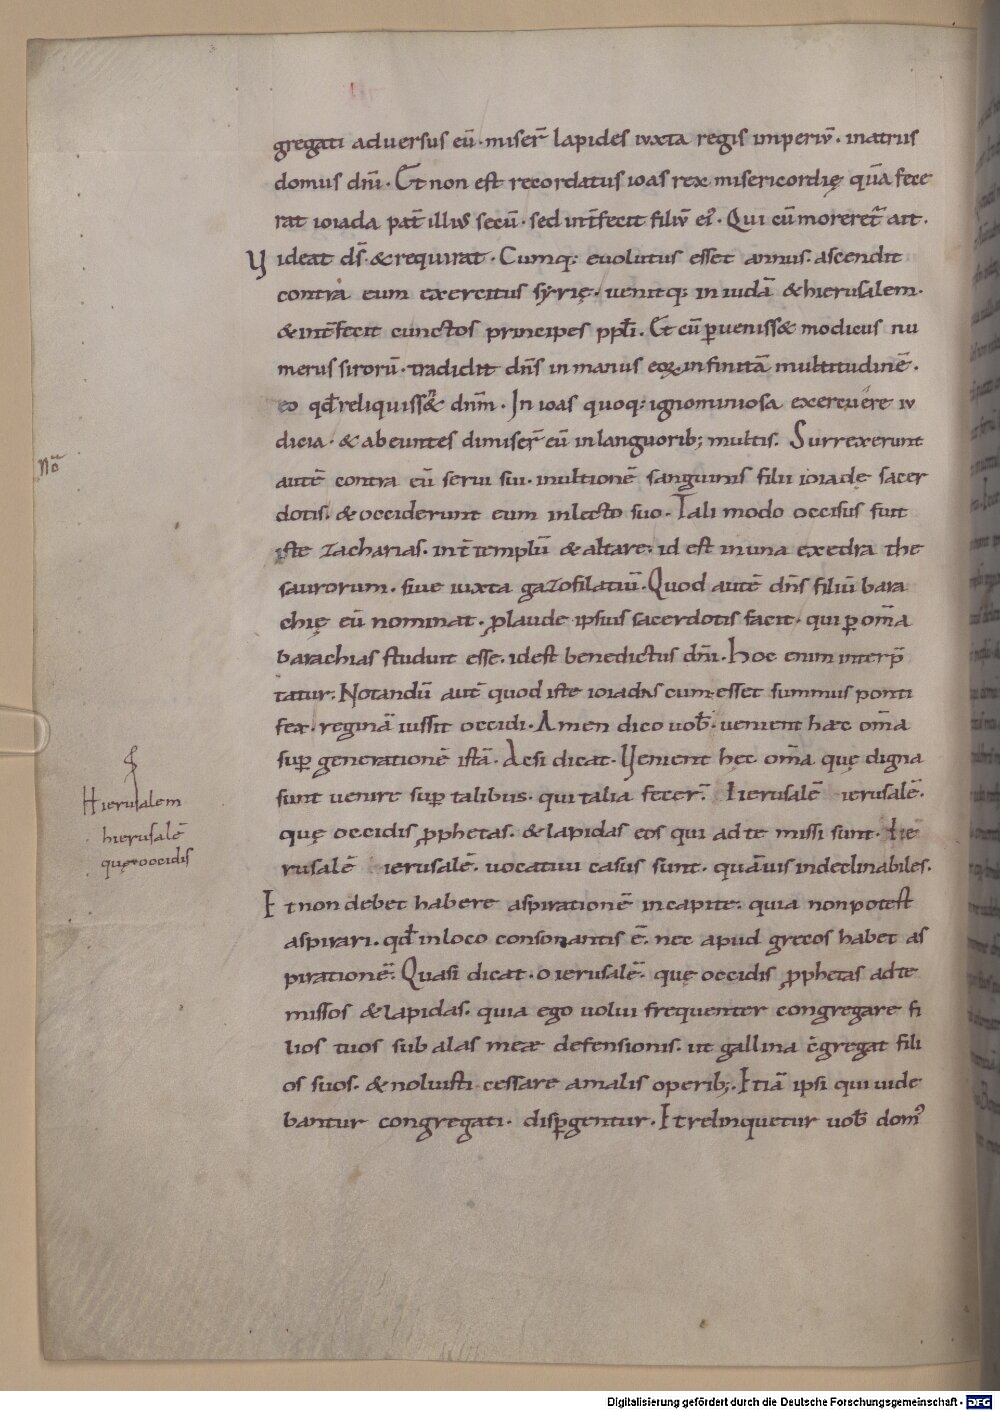 gregati aduersus eū · miser̄ lapides iuxta regis imperiū · in atriis
domus dn̄i · Et non est recordatus ioas rex misericordię quā fece
rat ioiada pat̄ illius secū · sed int̄fecit filiū ei᾽ · Qui cū moreret᷑ ait ·
Videat ds̄ · & requirat · Cumq; euolutus esset annus · ascendit
contra eum exercitus syrię · uenitq; in iudā & hierusalem ·
& int̄fecit cunctos principes ppl̄i · Et cū ꝑueniss& modicus nu
merus sirorū · tradidit dn̄s in manus eoꝝ infinitā multitudinē ·
eo qđ reliquiss& dn̄m · In ioas quoq; ignominiosa exercuere iu
dicia · & abeuntes dimiser̄ eū in languorib; multis · Surrexerunt
nō
autē contra eū serui sui · in ultionē sanguinis filii ioiade sacer
dotis · & occiderunt eum in lecto suo · Tali modo occisus fuit
iste zacharias · int̄ templū & altare · id est in una exedra the
saurorum · siue iuxta gazofilatiū · Quod autē dn̄s filiū bara
chię eū nominat · ꝓ laude ipsius sacerdotis facit · qui ꝑ om̄a
barachias studuit esse · id est benedictus dn̄i · Hoc enim interp̄
tatur · Notandū autē quod iste ioiadas cum esset summus ponti
fex · reginā iussit occidi · Amen dico uob̄ · uenient hæc om̄a
suꝑ generationē istā · Ac si dicat · Venient hęc om̄a quę digna
sunt uenire suꝑ talibus · qui talia fecer̄ · Hierusalē ierusalē ·
Hierusalem
hierusalē
quę occidis
quę occidis ꝓphetas · & lapidas eos qui ad te missi sunt · Hie
rusalē ierusalē · uocatiui casus sunt · quāuis indeclinabiles ·
Et non debet habere aspirationē in capite · quia non potest
aspirari · qđ in loco consonantis ē · nec apud grecos habet as
pirationē · Quasi dicat · o ierusalē · quę occidis ꝓphetas ad te
missos & lapidas · quia ego uolui frequenter congregare fi
lios tuos sub alas meæ defensionis · ut gallina c̄gregat fili
os suos · & noluisti cessare a malis operib; · Etiā ipsi qui uide
bantur congregati · disꝑgentur · Et relinquetur uob̄ dom᾽
Digitalisierung gefördert durch die Deutsche Forschungsgemeinschaft - DFG